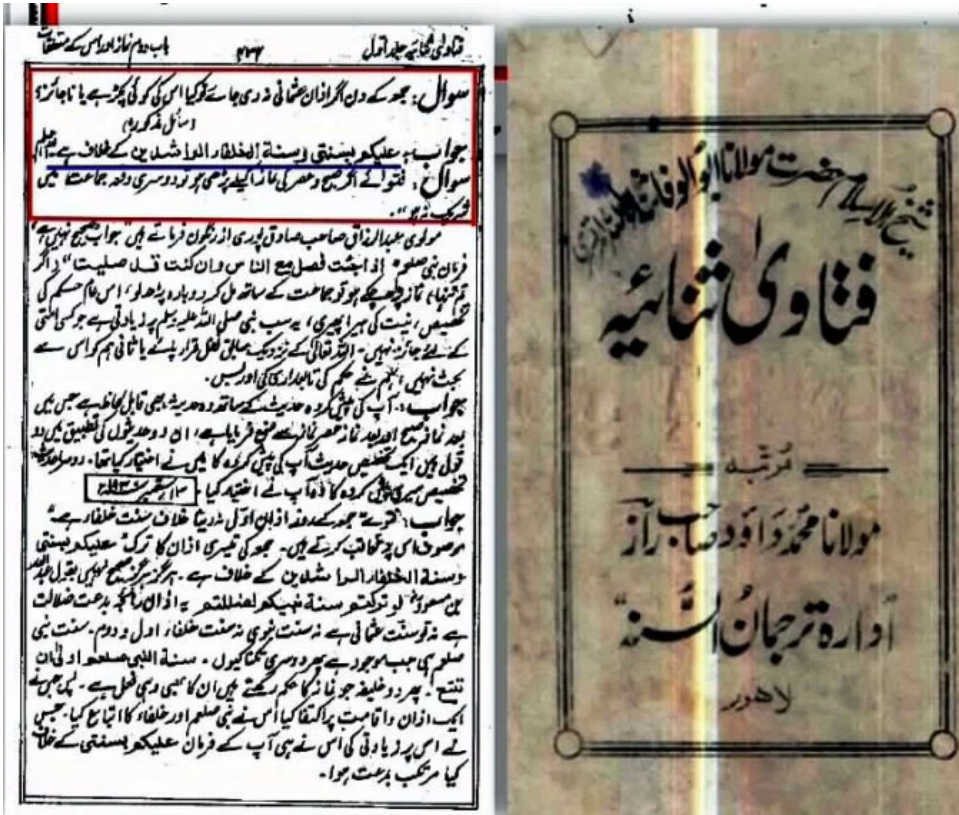 فتاویٰ ثنائیہ جلد اول
۴۳۶
باب دوم نماز اور اس کے متعلقات
سوال: جمعہ کے دن اگر اذان عثمانی نہ دی جائے تو کیا اس کی کوئی پکڑ ہے یا ناجائز؟
(سائل مذکورہ)
جواب:۔ علیکم بسنتی وسنة الخلفاء الراشدین کے خلاف ہے۔
سوال: فتوائے اگر صبح و عصر کی نماز اکیلے پڑھی ہو تو دوسری دفعہ جماعت میں
شریک نہ ہو"۔
مولوی عبدالرزاق صاحب صادق پوری از رنگون فرماتے ہیں "جواب صحیح نہیں ہے"
فرمان نبی صلعم" اذا جئت فصل مع الناس وان کنت قد صلیت" (اگر
تم تنہا نماز پڑھ چکے ہو تو جماعت کے ساتھ مل کر دوبارہ پڑھ لو، اس عام حکم کی
تخصیص، نیت کی ہیرا پھیری، یہ سب نبی صلی اللہ علیہ وسلم پر زیادتی ہے جو کسی امتی
کے لئے جائز نہیں۔ اللہ تعالیٰ کے نزدیک سابق نفل قرار پائے یا ثانی ہم کو اس سے
بحث نہیں، ہم نے حکم کی تابعداری کی اور بس۔
جواب:۔ آپ کی پیش کردہ حدیث کے ساتھ وہ حدیث بھی قابل لحاظ ہے جس میں
بعد نماز صبح اور بعد نماز عصر نماز سے منع فرمایا ہے، ان دو حدیثوں کی تطبیق میں دو
قول ہیں ایک تخصیص حدیث آپ کی پیش کردہ کا میں نے اختیار کیا تھا۔ دوسرا حدیث
تخصیص میری پیش کردہ کا وہ آپ نے اختیار کیا۔
جواب: فتوے جمعہ کے روز اذان اول نہ دینا خلاف سنت خلفاء ہے۔"
موصوف اس پر تعاقب کرتے ہیں۔ جمعہ کی تیسری اذان کا ترک علیکم بسنتی
وسنة الخلفاء الراشدین کے خلاف ہے۔ ہرگز ہرگز صحیح نہیں بقول عبداللہ
بن مسعود لو ترکتم سنة نبیکم لضللتم یہ اذان رائجہ بدعت ضلالت
ہے نہ تو سنت عثمانی ہے نہ سنت نبوی نہ سنت خلفاء اول و دوم۔ سنت نبی
صلعم ہی جب موجود ہے پھر دوسری تکنا کیوں۔ سنة النبی صلعم اولیٰ ان
تتبع۔ پھر دو خلیفہ جو نماز کا حکم رکھتے ہیں ان کا بھی وہی فعل ہے۔ پس جس نے
ایک اذان و اقامت پر اکتفا کیا اس نے نبی صلعم اور خلفاء کا اتباع کیا۔ جس
نے اس پر زیادتی کی اس نے ہی آپ کے فرمان علیکم بسنتی کے خلاف
کیا مرتکب بدعت ہوا۔
شیخ الاسلام حضرت مولانا ابوالوفا ثناء اللہ امرتسری
فتاویٰ ثنائیہ
مرتبہ
مولانا محمد داؤد صاحب راز
ادارہ ترجمان السنہ
لاهور